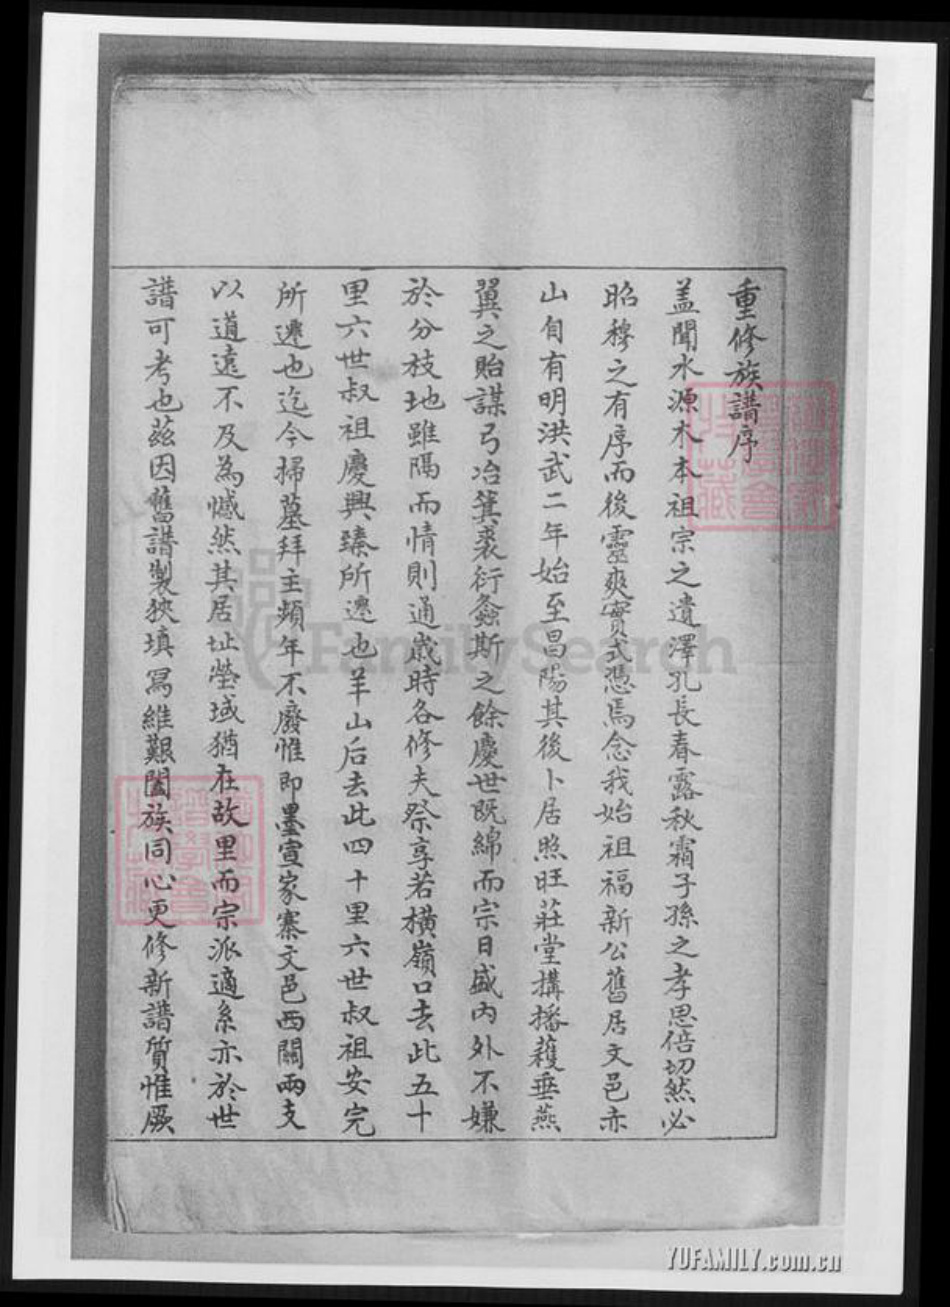 重修族譜序
盖聞水源木本祖宗之遺澤孔長春露秋霜子孫之孝思倍切然必
昭穆之有序而後靈爽實式憑焉念我始祖福新公舊居文邑赤
山自有明洪武二年始至昌陽其後卜居照旺莊堂構播穫垂燕
翼之貽謀弓冶箕裘衍螽斯之餘慶世既綿而宗日盛內外不嫌
於分枝地雖隔而情則通歲時各修夫祭享若橫嶺口去此五十
里六世叔祖慶興臻所遷也羊山后去此四十里六世叔祖安完
所遷也迄今掃墓拜主頻年不廢惟即墨宣家寨文邑西關兩支
以道遠不及為憾然其居址塋域猶在故里而宗派適系亦於世
譜可考也茲因舊譜製狹填寫維艱闔族同心更修新譜質惟厥
FamilySearch
YUFAMILY.com.cn